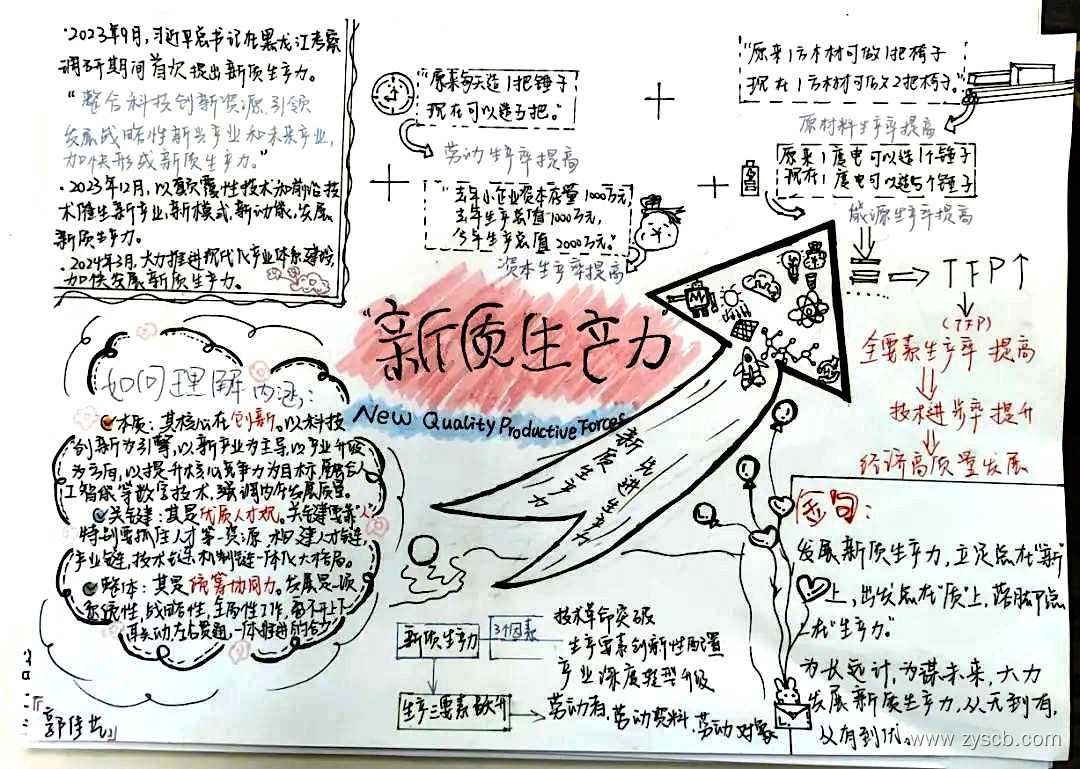 ·2023年9月,习近平总书记在黑龙江考察
调研期间首次提出新质生产力。
“整合科技创新资源,引领
发展战略性新兴产业和未来产业,
加快形成新质生产力。”
·2023年12月,以颠覆性技术和前沿技
术催生新产业,新模式,新动能,发展
新质生产力。
·2024年3月,大力推进现代化产业体系建设,
加快发展新质生产力。
“原来每天造1把锤子
现在可以造5把。”
劳动生产率提高
+
“原来1方木材可做1把椅子
现在1方木材可做2把椅子。”
原材料生产率提高
+
“去年小企业资本存量1000万元,
去年生产总值1000万元,
今年生产总值2000万元。”
资本生产率提高
+
原来1度电可以造1个锤子
现在1度电可以造5个锤子
能源生产率提高
TFP↑
(TFP)
全要素生产率提高
技术进步率提升
经济高质量发展
“新质生产力”
New Quality Productive Forces
先进生产力
新质生产力
如何理解内涵:
本质:其核心在创新。以科技
创新为引擎,以新产业为主导,以产业升级
为方向,以提升核心竞争力为目标,融合人
工智能等数字技术,强调内在发展质量。
关键:其是优质人才观。关键要靠“人”
特别要抓住人才第一资源
产业链,技术链,机制链一体化大格局。
整体:其是统筹协同力。发展是一项
系统性,战略性,全局性工作,离不开上下
联动左右贯通,一体推进的合力
新质生产力
3个因素
技术革命突破
生产要素创新性配置
产业深度转型升级
生产三要素跃升
劳动者,劳动资料,劳动对象
金句:
发展新质生产力,立足点在“新”
上,出发点在“质”上,落脚点
在“生产力”
为长远计,为谋未来,大力
发展新质生产力,从无到有,
从有到优。
www.zyscb.com